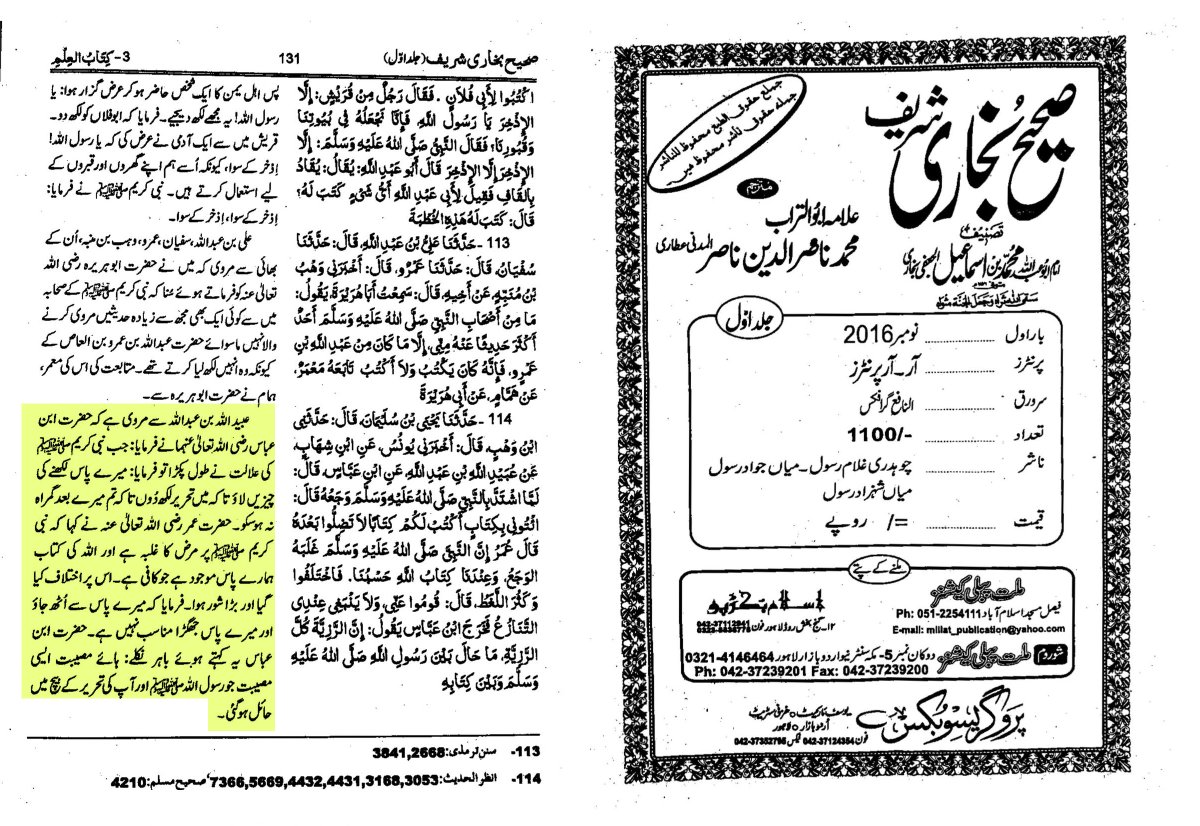 صحیح بخاری شریف (جلد اوّل)
131
3- كِتَابُ العِلْمِ
اكْتُبُوا لِأَبِي فُلَانٍ. فَقَالَ رَجُلٌ مِنْ قُرَيْشٍ: إِلَّا
الإِذْخِرَ يَا رَسُولَ اللهِ، فَإِنَّا نَجْعَلُهُ فِي بُيُوتِنَا
وَقُبُورِنَا؟ فَقَالَ النَّبِيُّ صَلَّى اللهُ عَلَيْهِ وَسَلَّمَ: إِلَّا
الإِذْخِرَ إِلَّا الإِذْخِرَ قَالَ أَبُو عَبْدِ اللهِ: يُقَالُ: يُقَادُ
بِالْقَافِ فَقِيلَ لِأَبِي عَبْدِ اللهِ أَيُّ شَيْءٍ كَتَبَ لَهُ؟
قَالَ: كَتَبَ لَهُ هَذِهِ الخُطْبَةَ
113 - حَدَّثَنَا عَلِيُّ بْنُ عَبْدِ اللهِ، قَالَ: حَدَّثَنَا
سُفْيَانُ، قَالَ: حَدَّثَنَا عَمْرٌو، قَالَ: أَخْبَرَنِي وَهْبُ
بْنُ مُنَبِّهٍ، عَنْ أَخِيهِ، قَالَ: سَمِعْتُ أَبَا هُرَيْرَةَ، يَقُولُ:
مَا مِنْ أَصْحَابِ النَّبِيِّ صَلَّى اللهُ عَلَيْهِ وَسَلَّمَ أَحَدٌ
أَكْثَرَ حَدِيثًا عَنْهُ مِنِّي، إِلَّا مَا كَانَ مِنْ عَبْدِ اللهِ بْنِ
عَمْرٍو، فَإِنَّهُ كَانَ يَكْتُبُ وَلَا أَكْتُبُ تَابَعَهُ مَعْمَرٌ،
عَنْ هَمَّامٍ، عَنْ أَبِي هُرَيْرَةَ
114 - حَدَّثَنَا يَحْيَى بْنُ سُلَيْمَانَ، قَالَ: حَدَّثَنِي
ابْنُ وَهْبٍ، قَالَ: أَخْبَرَنِي يُونُسُ، عَنِ ابْنِ شِهَابٍ،
عَنْ عُبَيْدِ اللهِ بْنِ عَبْدِ اللهِ، عَنِ ابْنِ عَبَّاسٍ، قَالَ:
لَمَّا اشْتَدَّ بِالنَّبِيِّ صَلَّى اللهُ عَلَيْهِ وَسَلَّمَ وَجَعُهُ قَالَ:
ائْتُونِي بِكِتَابٍ أَكْتُبُ لَكُمْ كِتَابًا لَا تَضِلُّوا بَعْدَهُ
قَالَ عُمَرُ إِنَّ النَّبِيَّ صَلَّى اللهُ عَلَيْهِ وَسَلَّمَ غَلَبَهُ
الوَجَعُ، وَعِنْدَنَا كِتَابُ اللهِ حَسْبُنَا. فَاخْتَلَفُوا
وَكَثُرَ اللَّغَطُ، قَالَ: قُومُوا عَنِّي، وَلَا يَنْبَغِي عِنْدِي
التَّنَازُعُ فَخَرَجَ ابْنُ عَبَّاسٍ يَقُولُ: إِنَّ الرَّزِيَّةَ كُلَّ
الرَّزِيَّةِ، مَا حَالَ بَيْنَ رَسُولِ اللهِ صَلَّى اللهُ عَلَيْهِ
وَسَلَّمَ وَبَيْنَ كِتَابِهِ
پس اہل یمن کا ایک شخص حاضر ہو کر عرض گزار ہوا: یا
رسول اللہ! یہ مجھے لکھ دیجیے۔ فرمایا کہ ابوفلاں کو لکھ دو۔
قریش میں سے ایک آدمی نے عرض کی کہ یا رسول اللہ!
اِذخر کے سوا، کیونکہ اُسے ہم اپنے گھروں اور قبروں کے
لیے استعمال کرتے ہیں۔ نبی کریم ﷺ نے فرمایا:
اِذخر کے سوا، اِذخر کے سوا۔
علی بن عبداللہ، سفیان، عمرو، وہب بن منبہ، اُن کے
بھائی سے مروی کہ میں نے حضرت ابوہریرہ رضی اللہ
تعالیٰ عنہ کو فرماتے ہوئے سُنا کہ نبی کریم ﷺ کے صحابہ
میں سے کوئی ایک بھی مجھ سے زیادہ حدیثیں مروی کرنے
والا نہیں ماسوائے حضرت عبداللہ بن عمرو بن العاص کے
کیونکہ وہ انہیں لکھ لیا کرتے تھے۔ متابعت کی اس کی معمر،
ہمام نے حضرت ابوہریرہ سے۔
عبید اللہ بن عبداللہ سے مروی ہے کہ حضرت ابن
عباس رضی اللہ تعالیٰ عنہما نے فرمایا: جب نبی کریم ﷺ
کی علالت نے طول پکڑا تو فرمایا: میرے پاس لکھنے کی
چیزیں لاؤ تاکہ میں تحریر لکھ دُوں تاکہ تم میرے بعد گمراہ
نہ ہوسکو۔ حضرت عمر رضی اللہ تعالیٰ عنہ نے کہا کہ نبی
کریم ﷺ پر مرض کا غلبہ ہے اور اللہ کی کتاب
ہمارے پاس موجود ہے جو کافی ہے۔ اس پر اختلاف کیا
گیا اور بڑا شور ہوا۔ فرمایا کہ میرے پاس سے اُٹھ جاؤ
اور میرے پاس جھگڑا مناسب نہیں ہے۔ حضرت ابن
عباس یہ کہتے ہوئے باہر نکلے: ہائے مصیبت ایسی
مصیبت جو رسول اللہ ﷺ اور آپ کی تحریر کے بیچ میں
حائل ہوگئی۔
113- سنن ترمذی: 3841,2668
114- انظر الحدیث: 7366,5669,4432,4431,3168,3053، صحیح مسلم: 4210
جميع حقوق الطبع محفوظ للناشر
جملہ حقوق ناشر محفوظ ہیں
صحیح بخاری شریف
تصنیف
امام ابو عبد اللہ محمد بن اسماعیل الجعفی بخاری
مترجم
علامہ ابو التراب
محمد ناصر الدین ناصر المدنی عطاری
جلد اوّل
بار اول ........ نومبر 2016
پرنٹرز ........ آر۔آر پرنٹرز
سرورق ........ النافع گرافکس
تعداد ........ 1100/-
ناشر ........ چوہدری غلام رسول۔ میاں جواد رسول
میاں شہزاد رسول
قیمت ........ =/ روپے
ملنے کے پتے
ملت پبلی کیشنز
فیصل مسجد اسلام آباد Ph: 051-2254111
E-mail: millat_publication@yahoo.com
اسلام بک ڈپو
۱۲۔ گنج بخش روڈ لاہور فون
شوروم ملت پبلی کیشنز دوکان نمبر 5- مکہ سنٹر نیو اردو بازار لاہور 0321-4146464
Ph: 042-37239201 Fax: 042-37239200
پروگریسو بکس
یوسف مارکیٹ ○ غزنی سٹریٹ
اُردو بازار ○ لاہور
فون 042-37124354 فیکس 042-37352795